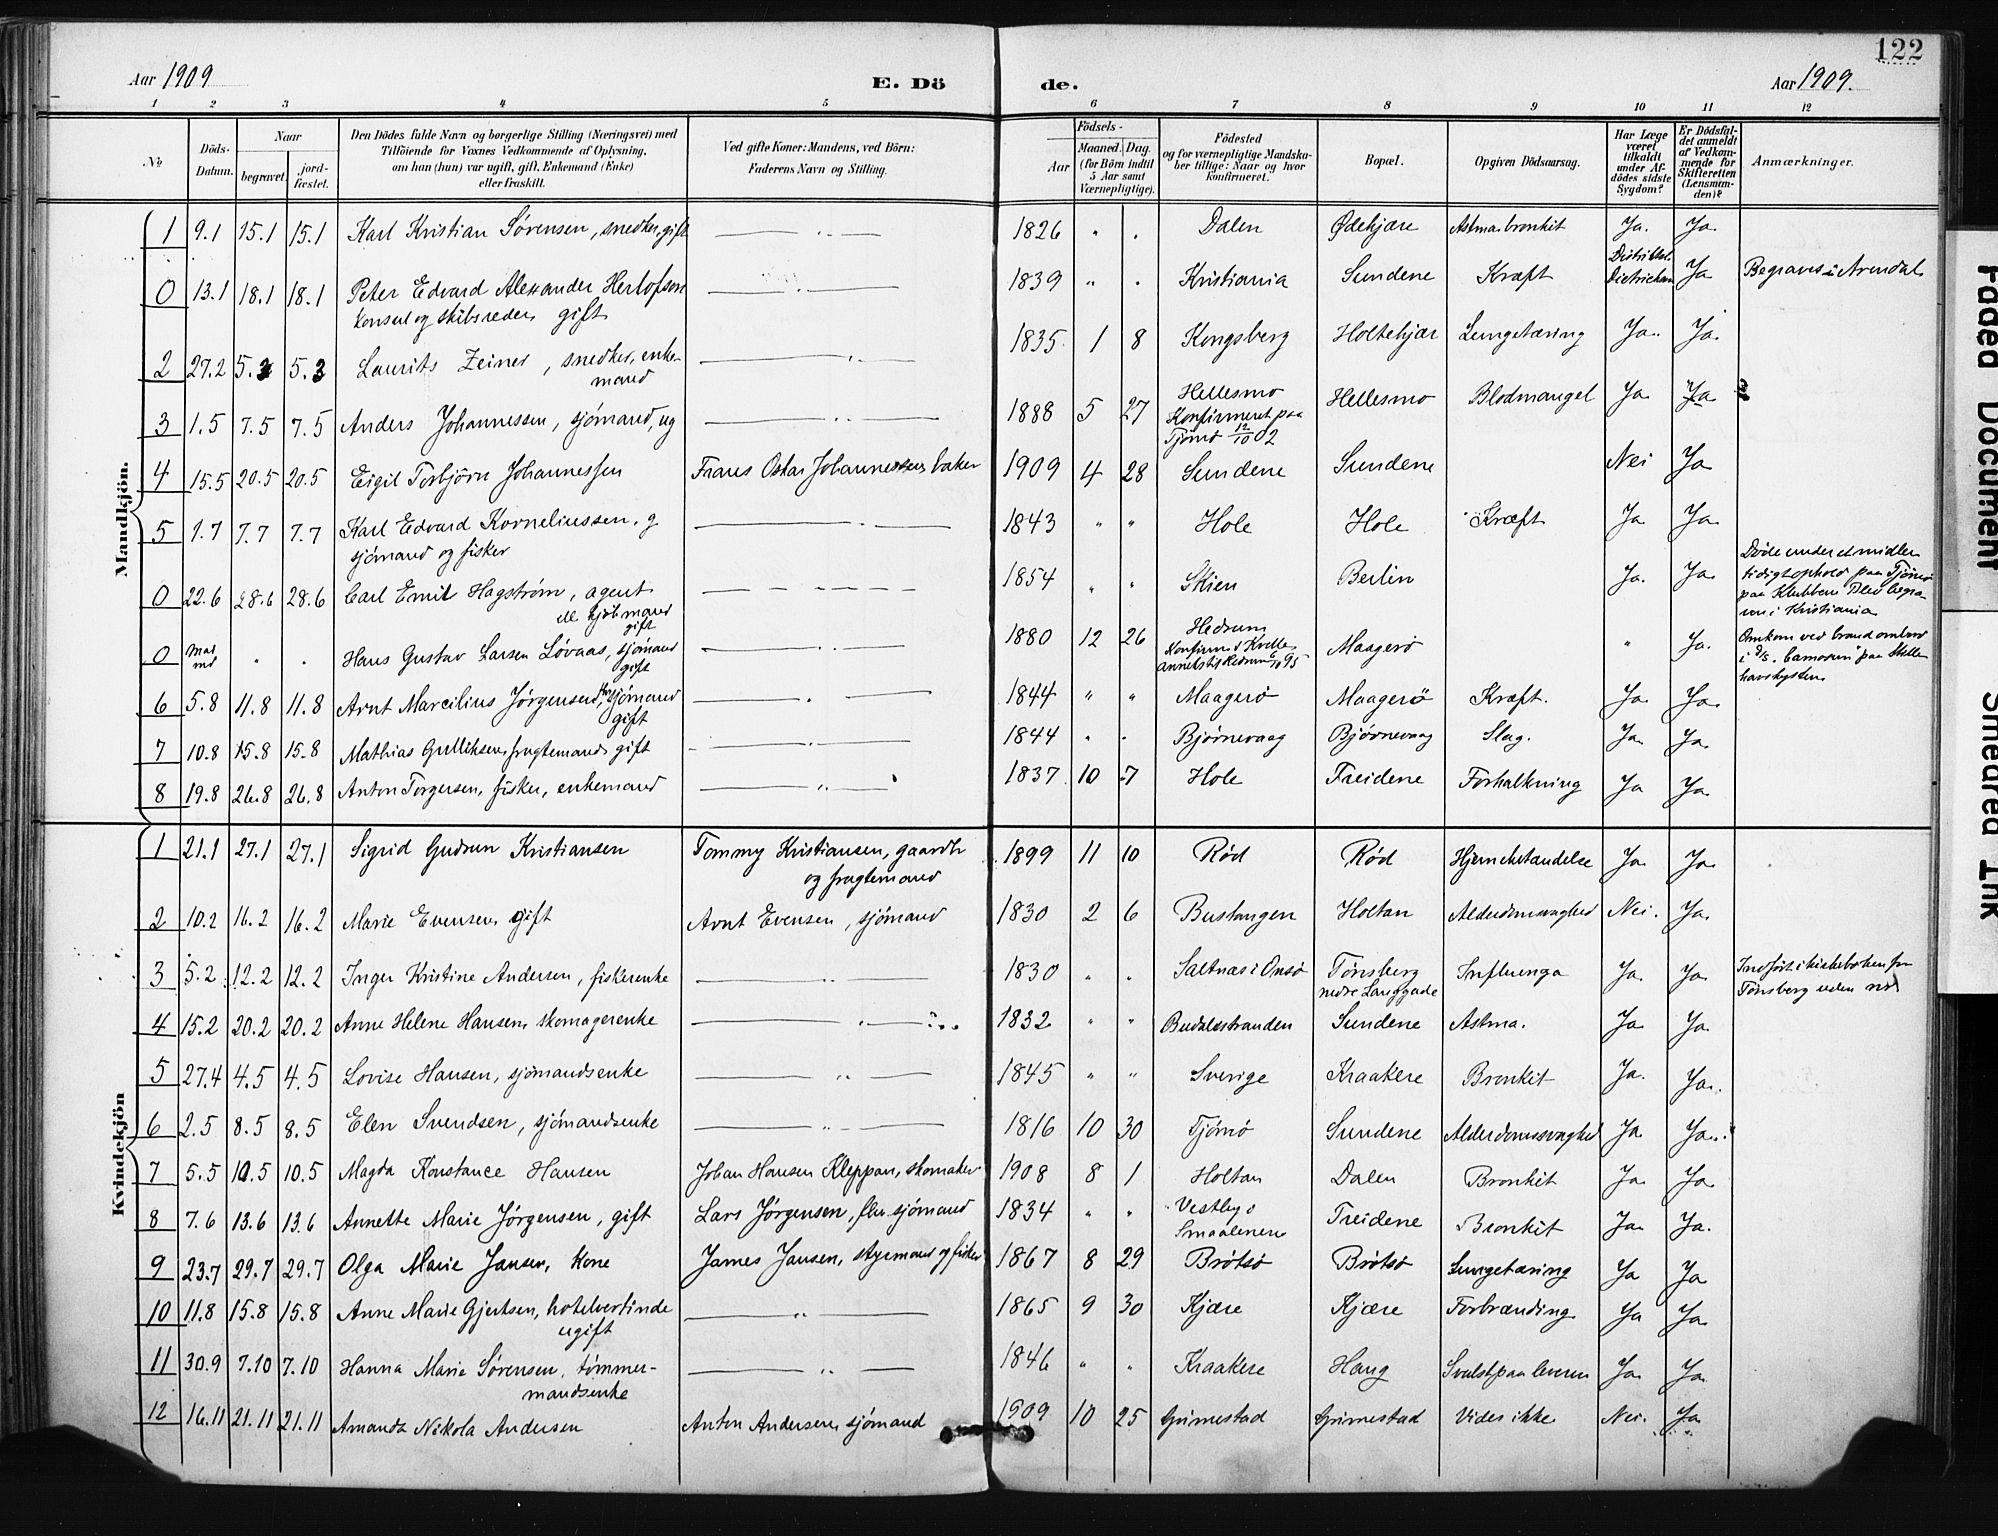 122
Aar 1909 E. Dö de. Aar 1909.
1 2 3 4 5 6 7 8 9 10 11 12
No. Döds-Datum. Naar begravet. jord-fæstet. Den Dödes fulde Navn og borgerlige Stilling (Næringsvei) med Tilföiende for Voxnes Vedkommende af Oplysning, om han (hun) var ugift, gift, Enkemand (Enke) eller fraskilt. Ved gifte Koner: Mandens, ved Börn: Faderens Navn og Stilling. Födsels- Aar Maaned. Dag. (for Börn indtil 5 Aar samt Værnepligtige). Födested og for værnepligtige Mandskaber tillige: Naar og hvor konfirmeret. Bopæl. Opgiven Dödsaarsag. Har Læge været tilkaldt under Afdödes sidste Sygdom? Er Dödsfaldet anmeldt af Vedkommende for Skifteretten (Lensmanden)? Anmærkninger.
Mandkjön.
1 9.1 15.1 15.1 Karl Kristian Sørensen, snedker, gift 1826 " . Dalen Ødekjære Astma. bronkit Ja. Ja.
0 13.1 18.1 18.1 Peter Edvard Alexander Herlofson konsul og skibsreder gift 1839 " . Kristiania Sundene Kræft Ja Begraves i Arendal
2 27.2 5.3 5.3 Laurits Zeiner, snedker, enkemand 1835. 1 8 Kongsberg Holtekjær Lungetæring Ja. Ja.
3 1.5 7.5 7.5 Anders Johannessen, sjómand, ug 1888 5 27 Hellesmo Konfirmeret paa Tjömö 12/10 02 Hellesmo Blodmangel Ja Ja
4 15.5 20.5 20.5 Eigil Torbjörn Johannessen Frans Oskar Johannessen, baker 1909 4 28 Sundene Sundene Nei Ja
5 1.7 7.7 7.7 Karl Edvard Korneliussen, g sjómand og fisker 1843 " " Hole Hole Kræft Ja Ja.
0 22.6 28.6 28.6 Carl Emil Hagstrøm, agent kjöbmand gift 1854 " " Skien Berlin Ja. Ja. Døde under et midlertidigt ophold paa Tjömö paa Klubben Blev begraven i Kristiania
0 " . Hans Gustav Larsen Løvaas, sjómand gift 1880 12 26 Hedrum Maagerö " Ja. Omkom ved brand ombord i d/s. "
6 5.8 11.8 11.8 Arnt Marcilius Jørgensen, sjómand gift 1844 " " Maagerö Maagerö Kræft. Ja. Ja.
7 10.8 15.8 15.8 Mathias Gulliksen, fragtemand, gift 1844 " . Bjørnevaag Bjørnevaag Slag. Ja. Ja.
8 19.8 26.8 26.8 Anton Torgersen, fisker, enkemand 1837 10 7 Hole Treidene Forkalkning Ja Ja.
Kvindekjön
1 21.1 27.1 27.1 Sigrid Gudrun Kristiansen Tommy Kristiansen, gaardbr og fragtemand 1899 11 10 Rød Rød Hjernebetændelse Ja. Ja.
2 10.2 16.2 16.2 Marie Evensen, gift Arnt Evensen, sjómand 1830 2 6 Bustangen Holtan Alderdomssvaghed Nei. Ja.
3 5.2 12.2 12.2 Inger Kristine Andersen, fiskerenke 1830 " " Saltnæs i Onsö Tønsberg nedre Langgade Influenza Ja. Ja. Indført i kirkeboken for Tønsberg uden no
4 15.2 20.2 20.2 Anne Helene Hansen, skomagerenke 1832 " " Budalsstranden Sundene Astma. Ja Ja.
5 27.4 4.5 4.5 Lovise Hansen, sjómandsenke 1845 " " Sverige Kraakere Bronkit Ja. Ja.
6 2.5 8.5 8.5 Elen Svendsen, sjómandsenke 1816 10 30 Tjömö Sundene Alderdomssvaghed Ja Ja.
7 5.5 10.5 10.5 Magda Konstance Hansen Johan Hansen Kleppan, skomaker 1908 8 1 Holtan Dalen Bronkit Ja. Ja.
8 7.6 13.6 13.6 Annette Marie Jørgensen, gift Lars Jørgensen, fhv. sjómand 1834 " " Vestby i Smaalenene Treidene Bronkit Ja. Ja.
9 23.7 29.7 29.7 Olga Marie Jansen, kone James Jansen, styrmand og fisker 1867 8 29 Brøtsø Brøtsø Lungetæring Ja Ja
10 11.8 15.8 15.8 Anne Marie Gjertsen, hotelvertinde ugift 1865 9 30 Kjære Kjære Forbrænding Ja Ja.
11 30.9 7.10 7.10 Hanna Marie Sørensen, tømmermandsenke 1846 " " Kraakere Haug Svulst paa leveren Ja. Ja.
12 16.11 21.11 21.11 Amanda Nikola Andersen Anton Andersen, sjómand 1909 10 25 Grimestad Grimestad Vides ikke Nei. Ja
Faded Document
Smeared Ink